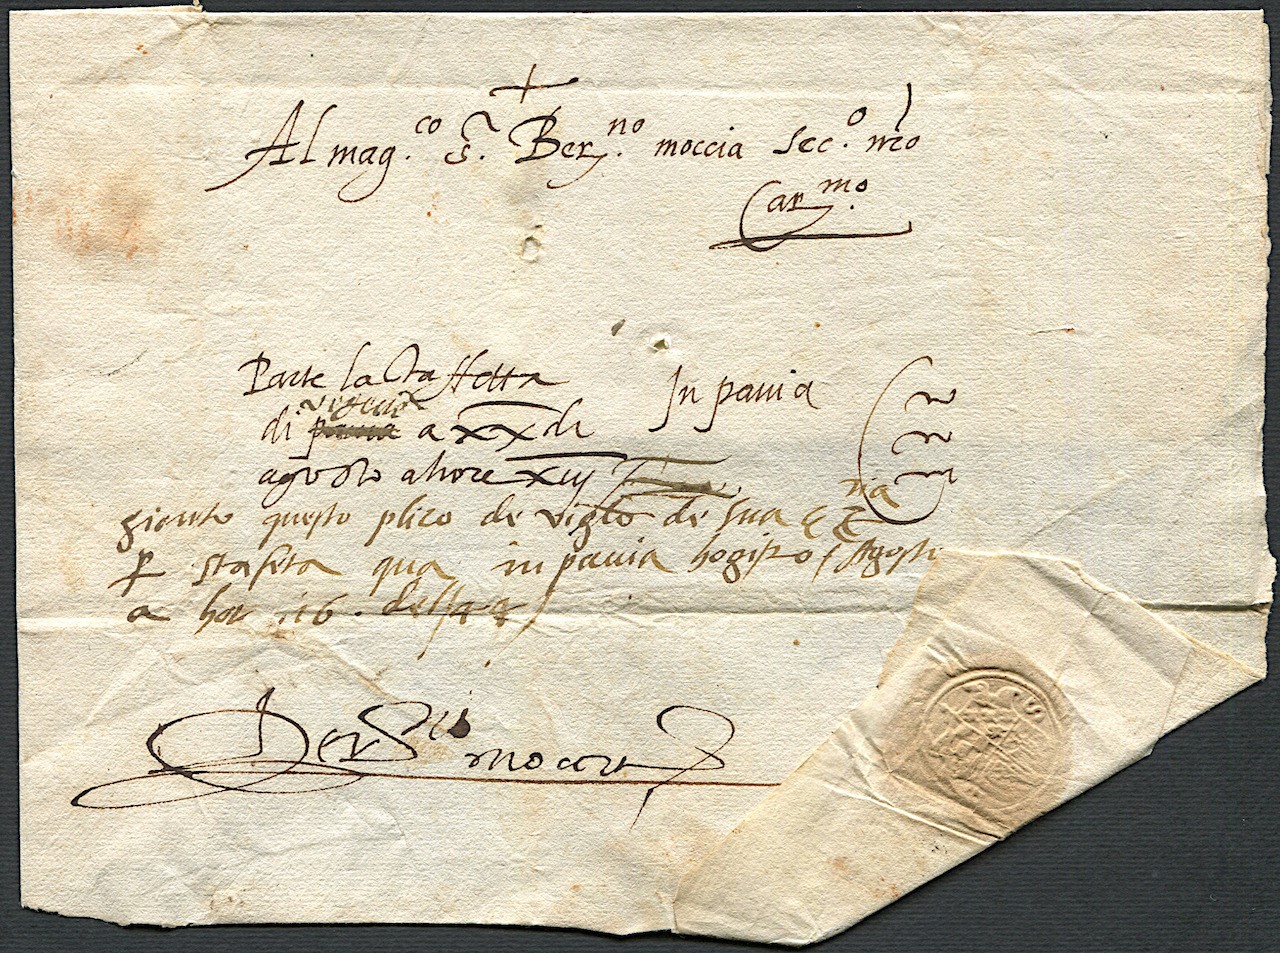 Al mag.co S.r Ber.no moccia sec.o mio
Car.mo
Parte la staffetta
di vigeuo a xx de
agosto a hore xiij
In pauia
giunto questo plico de vigto de sua Ecc.tia
p staffeta qua in pauia hogi 20 Agosto
a hor 16.
moccia